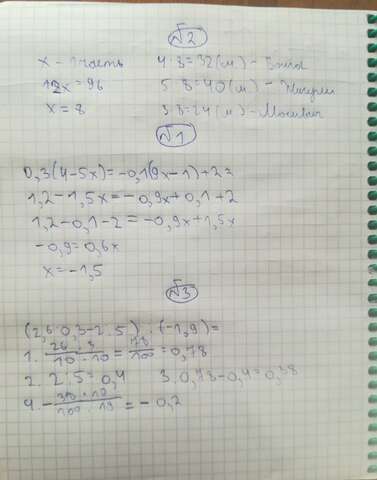 №2
x - 1 часть 4·8=32(м) -
12x=96 5·8=40(м) -
x=8 3·8=24(м) -
№1
0,3(4-5x)=-0,1(9x-1)+2
1,2-1,5x=-0,9x+0,1+2
1,2-0,1-2=-0,9x+1,5x
-0,9=0,6x
x=-1,5
№3
(2,6·0,3-2:5):(-1,9)=
1. 26·3/10·10=78/100=0,78
2. 2:5=0,4 3. 0,78-0,4=0,38
4. -38·10/100·19=-0,2